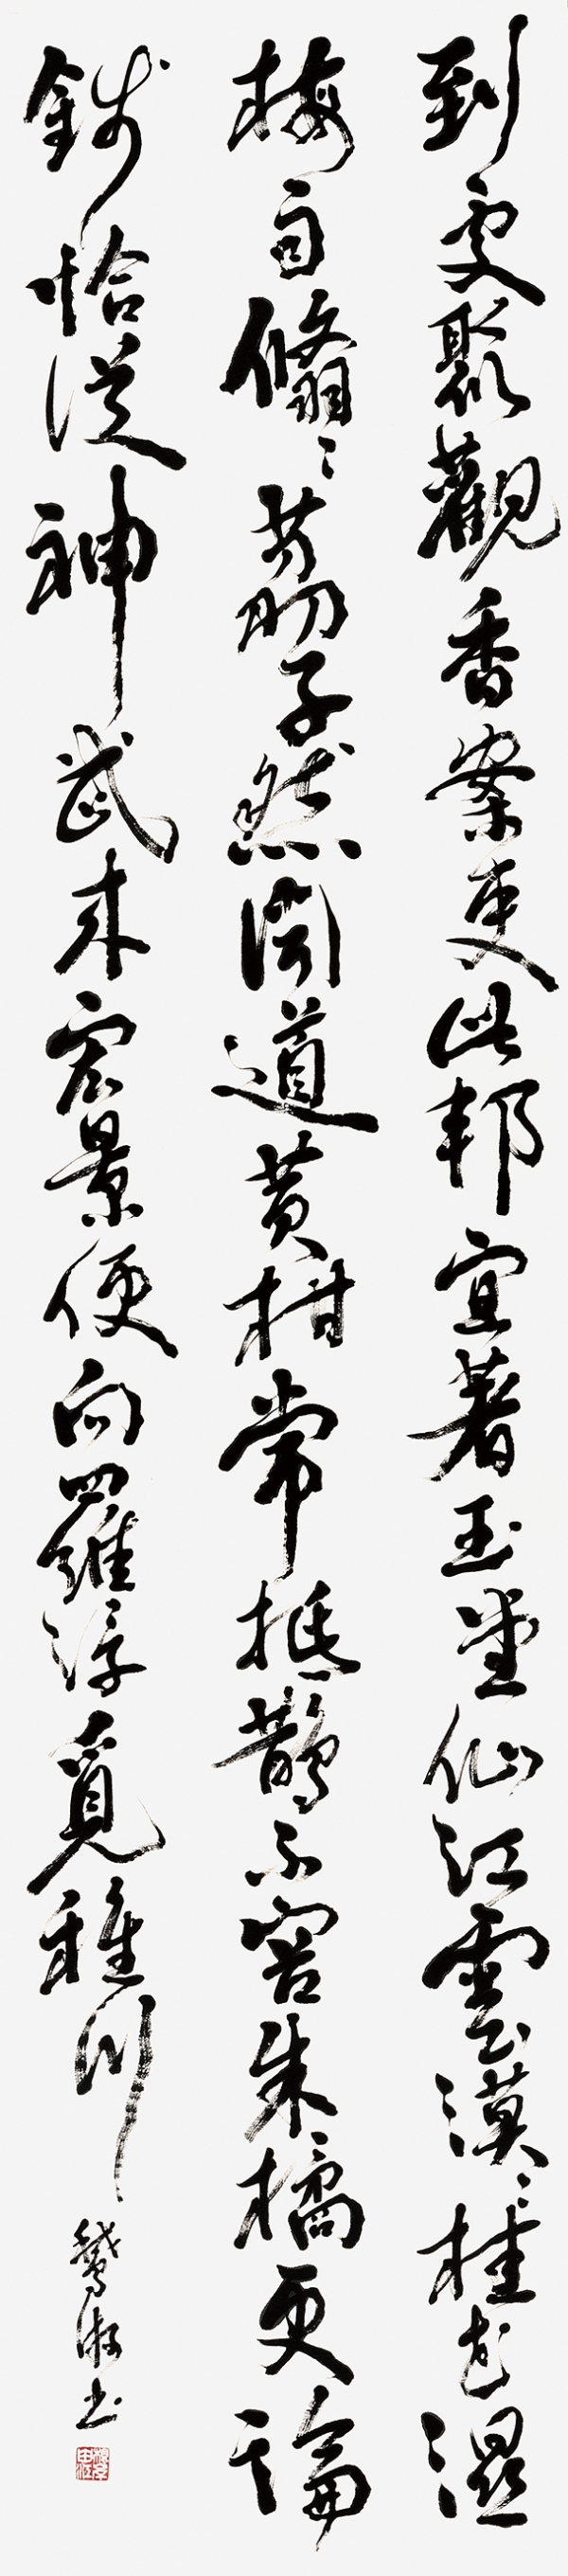 到處聚觀香案吏此邦宜著玉堂仙江雲漠〻桂花濕
梅雨翛〻荔子然聞道黃柑常抵鵲不容朱橘更論
錢恰從神武來宏景便向羅浮覓稚川
書